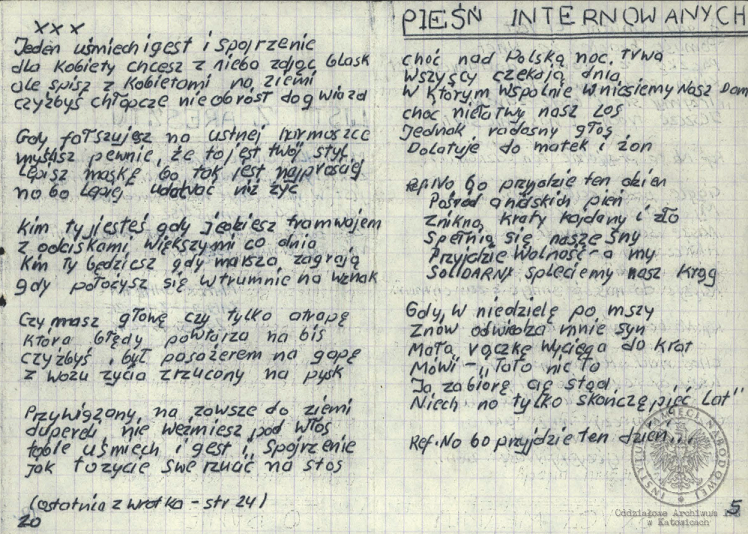 x x x
Jeden uśmiech i gest i spojrzenie
dla kobiety chcesz z nieba zdjąć blask
ale śpisz z kobietami na ziemi
czyżbyś chłopcze nie obrósł do gwiazd
Gdy fałszujesz na ustnej harmoszce
myślisz pewnie, że to jest twój styl
Lepisz maskę bo tak jest najprościej
no bo lepiej udawać niż żyć
Kim ty jesteś gdy jedziesz tramwajem
z odciskami większymi co dnia
Kim ty będziesz gdy marsza zagrają
gdy położysz się w trumnie na wznak
Czy masz głowę czy tylko atrapę
która błędy powtarza na bis
czyżbyś był pasażerem na gapę
z wozu życia zrzucony na pysk
Przywiązany na zawsze do ziemi
duperelí nie weźmiesz pod włos
tobie uśmiech i gest i spojrzenie
jak to życie swe rzucać na stos
(ostatnia zwrotka - str 24)
20
PIEŚŃ INTERNOWANYCH
choć nad Polską noc, trwa
Wszyscy czekają dnia
W którym wspólnie wniesiemy Nasz Dom
choć niełatwy nasz los
Jednak radosny głos
Dolatuje do matek i żon
Ref. No bo przyjdzie ten dzień
Pośród pień
Znikną kraty kajdany i zło
Spełnią się nasze sny
Przyjdzie Wolność - a my
SOLIDARNI spleciemy nasz krąg
Gdy, w niedzielę po mszy
Znów odwiedza mnie syn
Małą rączkę wyciąga do krat
Mówi - „Tato nic to
Ja zabiorę cię stąd
Niech no tylko skończę pięć lat"
Ref. No bo przyjdzie ten dzień...
INSTYTUT PAMIĘCI NARODOWEJ
Oddziałowe Archiwum
w Katowicach
5